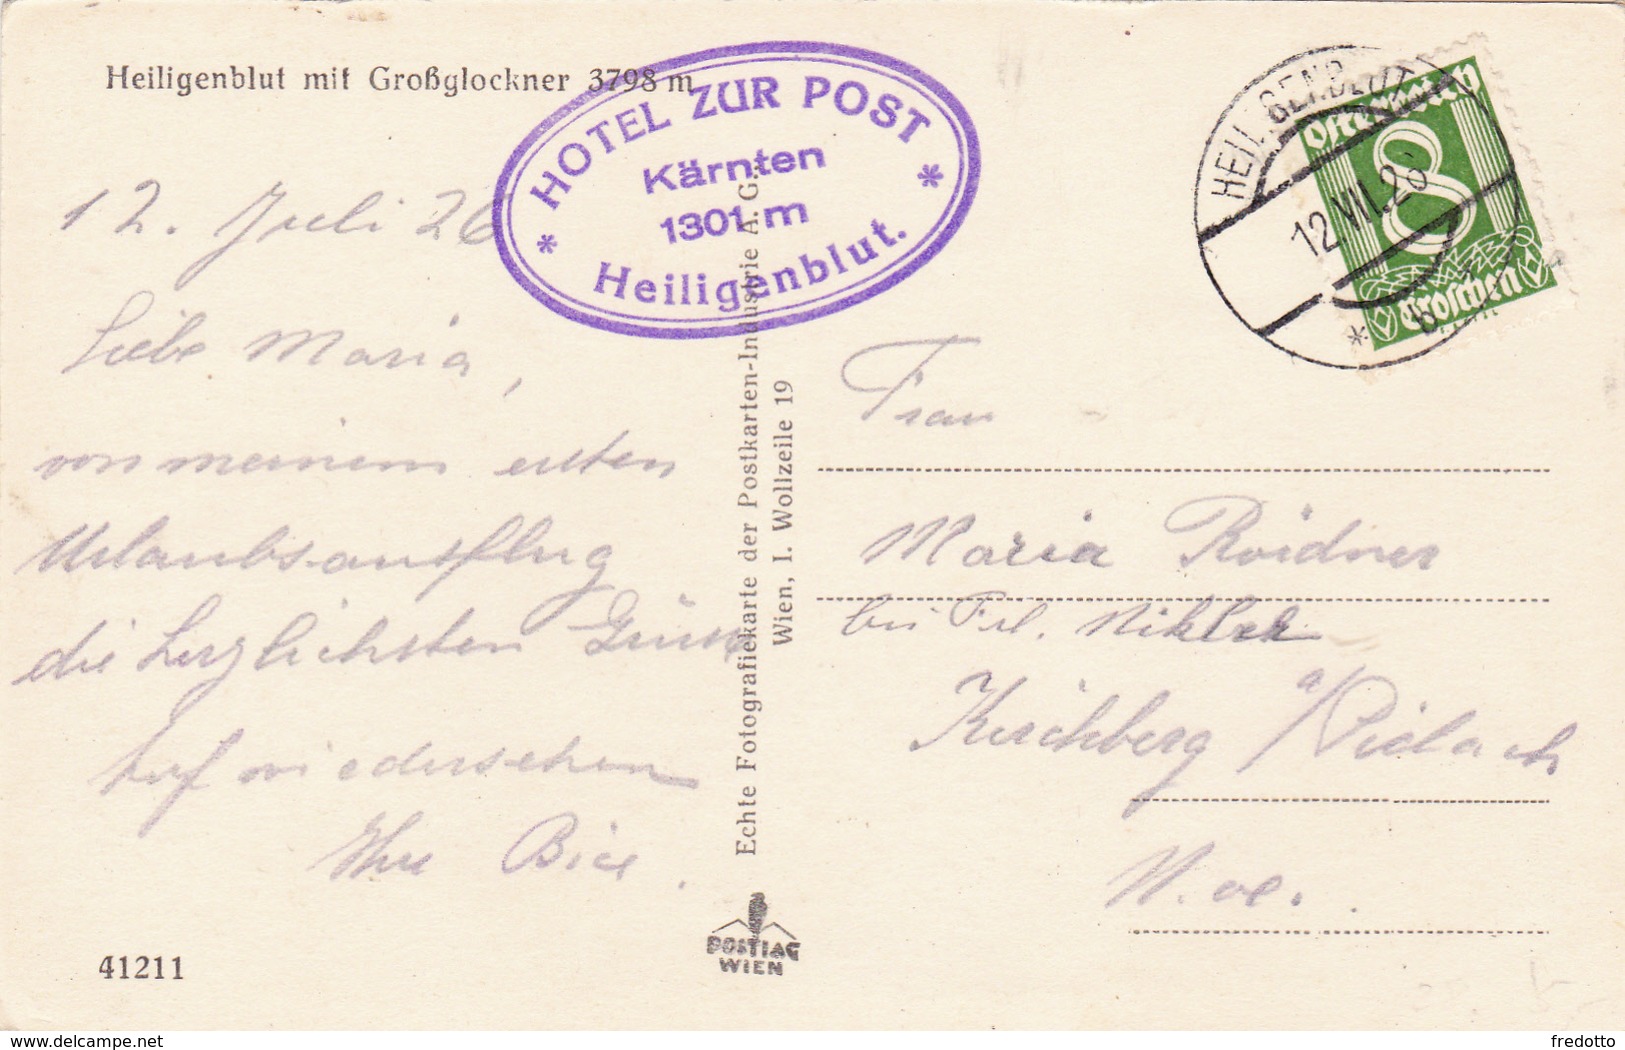 Heiligenblut mit Großglockner 3798 m
HOTEL ZUR POST
Kärnten
1301 m
Heiligenblut.
HEILIGENBLUT
12.VII.26
Österreich
8
Groschen
12. Juli 26
Liebe Maria,
von meinem ersten
Urlaubsausflug
die herzlichsten Grüsse
Auf wiedersehen
Ihre
Echte Fotografiekarte der Postkarten-Industrie A. G.,
Wien, I. Wollzeile 19
Frau
Maria Roidner
bei Frl.
Kirchberg a/Pielach
N. oe.
POSTIAG
WIEN
41211
delcampe.net
fredotto